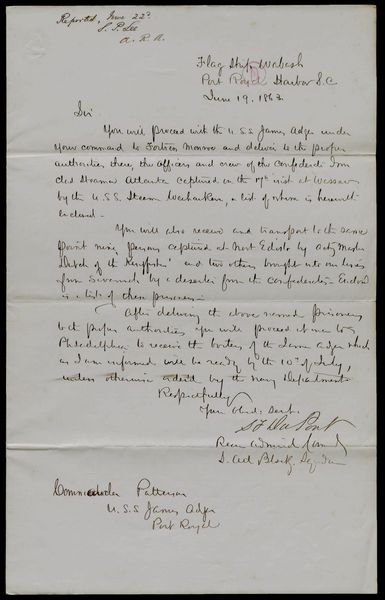 Reported, June 22d
S. P. Lee
A. R. A.
Flag Ship Wabash
Port Royal Harbor S.C
June 19, 1863.
Sir
You will proceed with the U.S.S. James Adger under
your command to Fortress Monroe and deliver to the proper
authorities there, the officers and crew of the Confederate Iron
clad Steamer Atlanta captured on the 17th inst at Wassaw
by the U.S.S. Steamer Weehawken, a list of whom is herewith
enclosed.
You will also receive and transport to the same
point nine persons captured at North Edisto by Actg Master
of the and two others brought into our lines
from Savannah by a deserter from the Confederates. Enclosed
is a list of these prisoners.
After delivering the above named prisoners
to the proper authorities you will proceed
Philadelphia to receive the boilers of the James Adger which
as I am informed will be ready by the 10th of July,
unless otherwise ordered by the Navy Department
Respectfully
Your Obdt: Servt.
S F Du Pont
Rear Admiral Comdg
S. Atl Blockg. Squadron
Commander Patterson
U.S.S James Adger
Port Royal